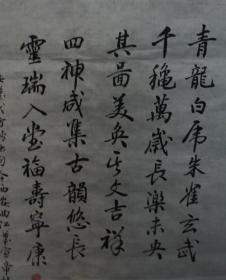 青龍白虎朱雀玄武
千龝萬歲長樂未央
其畐美奐其文吉祥
四神咸集古韻悠長
靈瑞入堂福壽寧康